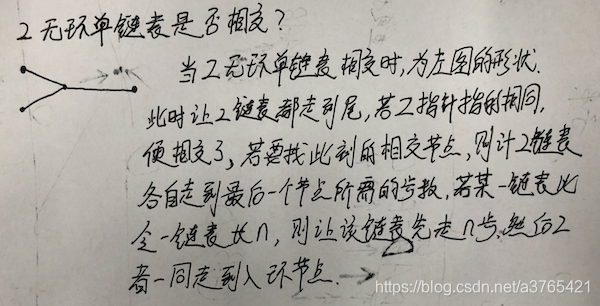 2 无环单链表是否相交?
当2无环单链表相交时,为左图的形状.
此时让2链表都走到尾,若2指针指的相同,
便相交了,若要找此到的相交节点,则计2链表
各自走到最后一个节点所需的步数,若某一链表比
令一链表长n,则让该链表先走n步.然后2
者一同走到入环节点.
https://blog.csdn.net/a3765421